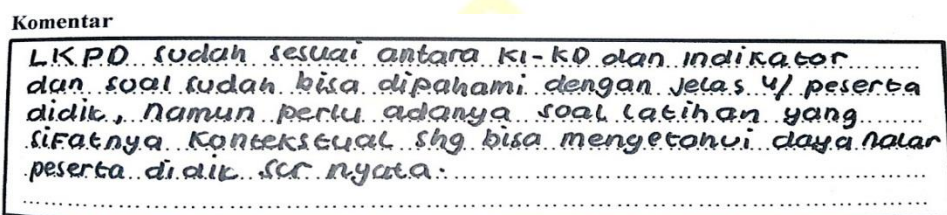 Komentar
LKPD sudah sesuai antara KI-KD dan indikator
dan soal sudah bisa dipahami dengan jelas u/ peserta
didik, namun perlu adanya soal latihan yang
sifatnya kontekstual shg bisa mengetahui daya nalar
peserta didik scr nyata.